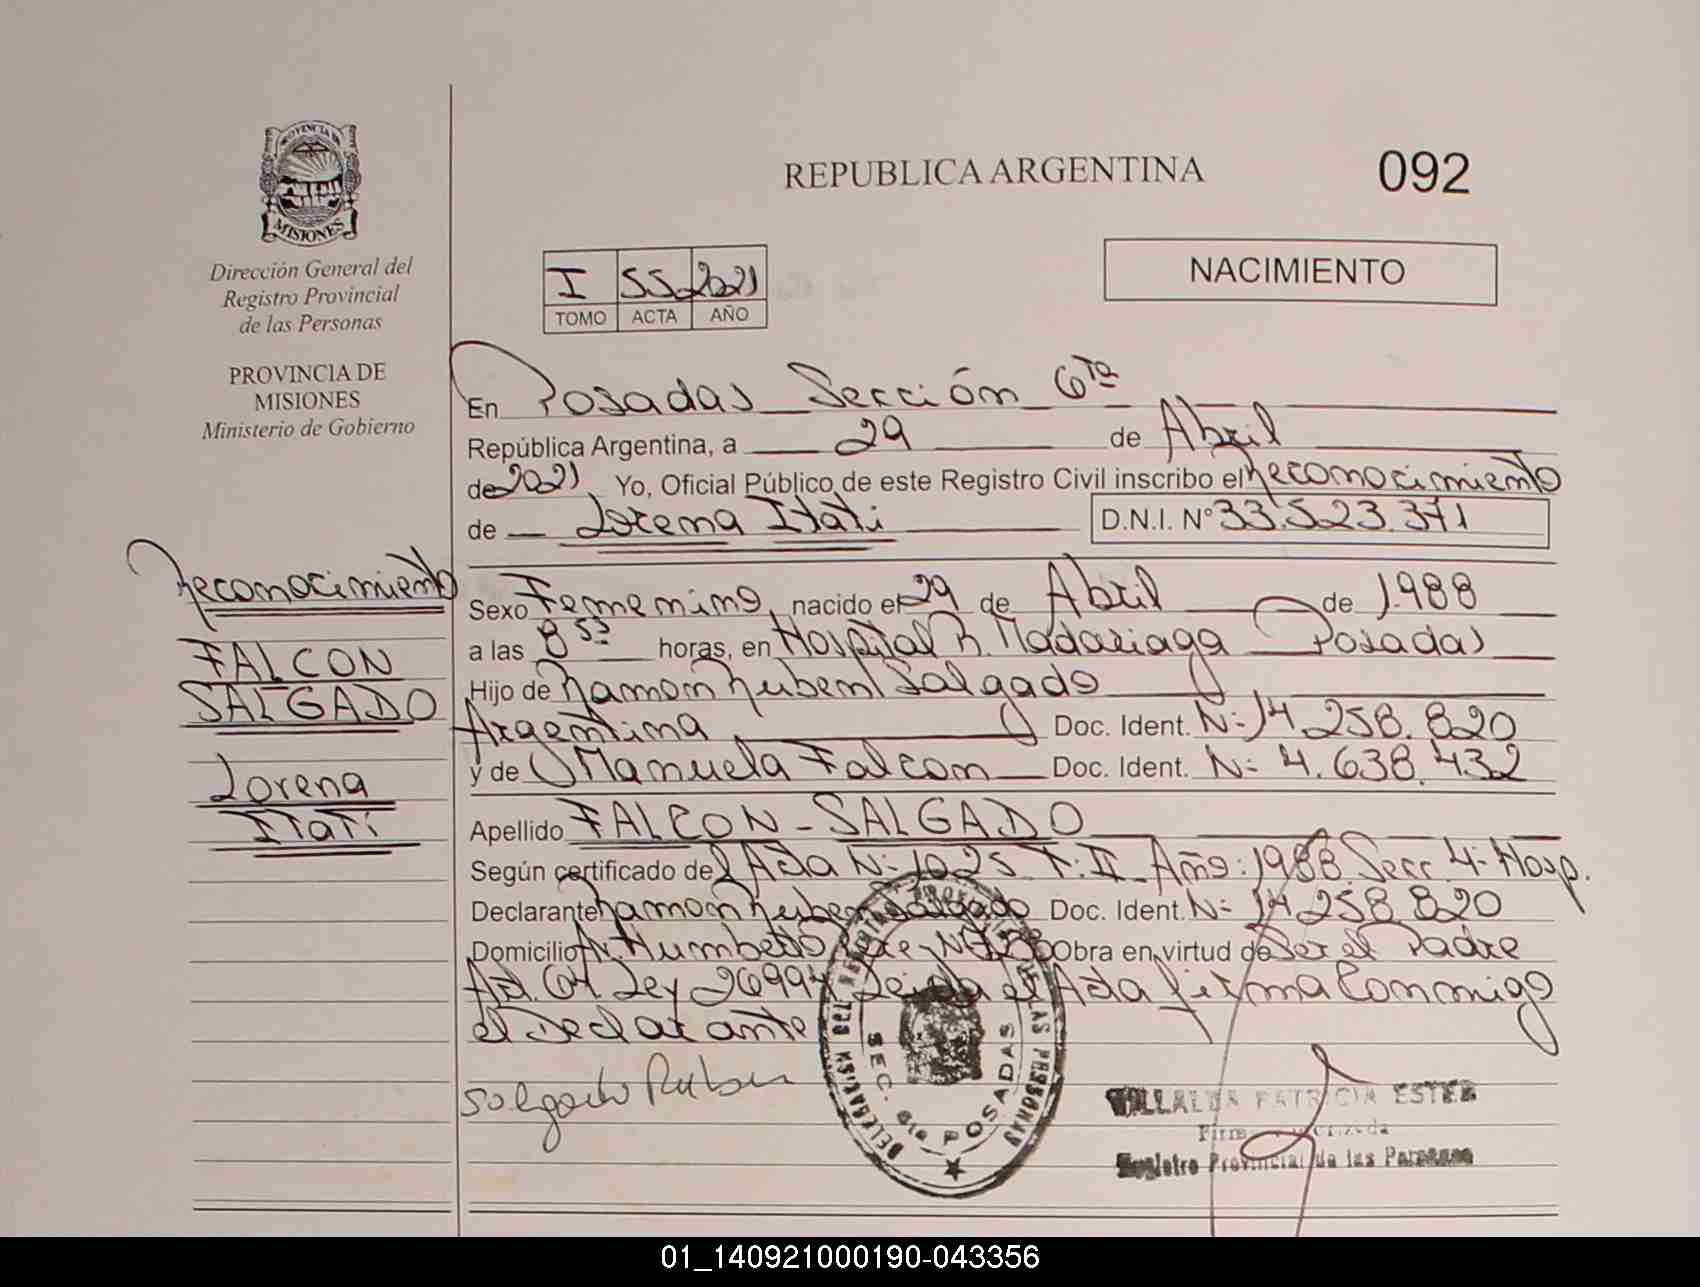 PROVINCIA DE
MISIONES
Dirección General del
Registro Provincial
de las Personas
PROVINCIA DE
MISIONES
Ministerio de Gobierno
REPUBLICA ARGENTINA
092
I 55 2021
TOMO ACTA AÑO
NACIMIENTO
En Posadas Sección 6ta
República Argentina, a 29 de Abril
de 2021 Yo, Oficial Público de este Registro Civil inscribo el Reconocimiento
de Lorena Itati D.N.I. N° 33.523.371
Reconocimiento
FALCON
SALGADO
Lorena
Itati
Sexo Femenino nacido el 29 de Abril de 1988
a las 8 53 horas, en Hospital R. Madariaga Posadas
Hijo de Ramon Ruben Salgado
Argentina Doc. Ident. N: 14.258.820
y de Manuela Falcon Doc. Ident. N: 4.638.432
Apellido FALCON - SALGADO
Según certificado del Acta N: 1025 T: II Año: 1988 Secc 4: Hosp.
Declarante Ramon Ruben Salgado Doc. Ident. N: 14.258.820
Domicilio Av. Humberto Obra en virtud de Ser el Padre
Art. 64 Ley 26994 Leida el Acta firma Conmigo
el Declarante
Salgado Ruben
DELEGACION DEL REGISTRO PROVINCIAL DE LAS PERSONAS
SEC. 6ta POSADAS
VILLALBA PATRICIA ESTER
Firma Autorizada
Registro Provincial de las Personas
01_140921000190-043356